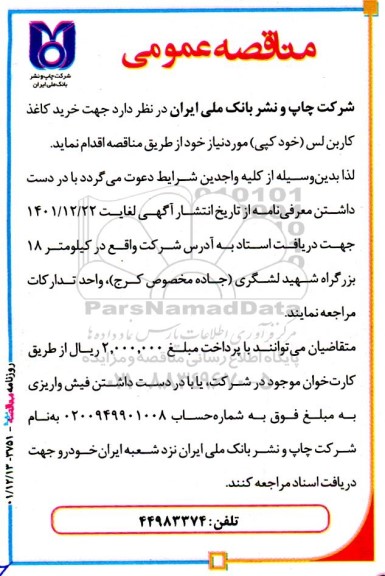 مناقصه عمومی
شرکت چاپ و نشر
بانک ملی ایران
شرکت چاپ و نشر بانک ملی ایران در نظر دارد جهت خرید کاغذ
کاربن لس (خود کپی) موردنیاز خود از طریق مناقصه اقدام نماید.
لذا بدین‌وسیله از کلیه واجدین شرایط دعوت می‌گردد با در دست
داشتن معرفی‌نامه از تاریخ انتشار آگهی لغایت ۱۴۰۱/۱۲/۲۲
جهت دریافت اسناد به آدرس شرکت واقع در کیلومتر ۱۸
بزرگراه شهید لشگری (جاده مخصوص کرج)، واحد تدارکات
مراجعه نمایند.
ParsNamadData
پایگاه اطلاع رسانی مناقصه و مزایده
متقاضیان می‌توانند با پرداخت مبلغ ۲,۰۰۰,۰۰۰ ریال از طریق
کارت‌خوان موجود در شرکت، یا با در دست داشتن فیش واریزی
به مبلغ فوق به شماره‌حساب ۰۲۰۰۹۴۹۹۰۱۰۰۸ به‌نام
شرکت چاپ و نشر بانک ملی ایران نزد شعبه ایران‌خودرو جهت
دریافت اسناد مراجعه کنند.
تلفن: ۴۴۹۸۳۳۷۴
روزنامه مناقصه - ۳۷۵۱ - ۰۱/۱۲/۱۳